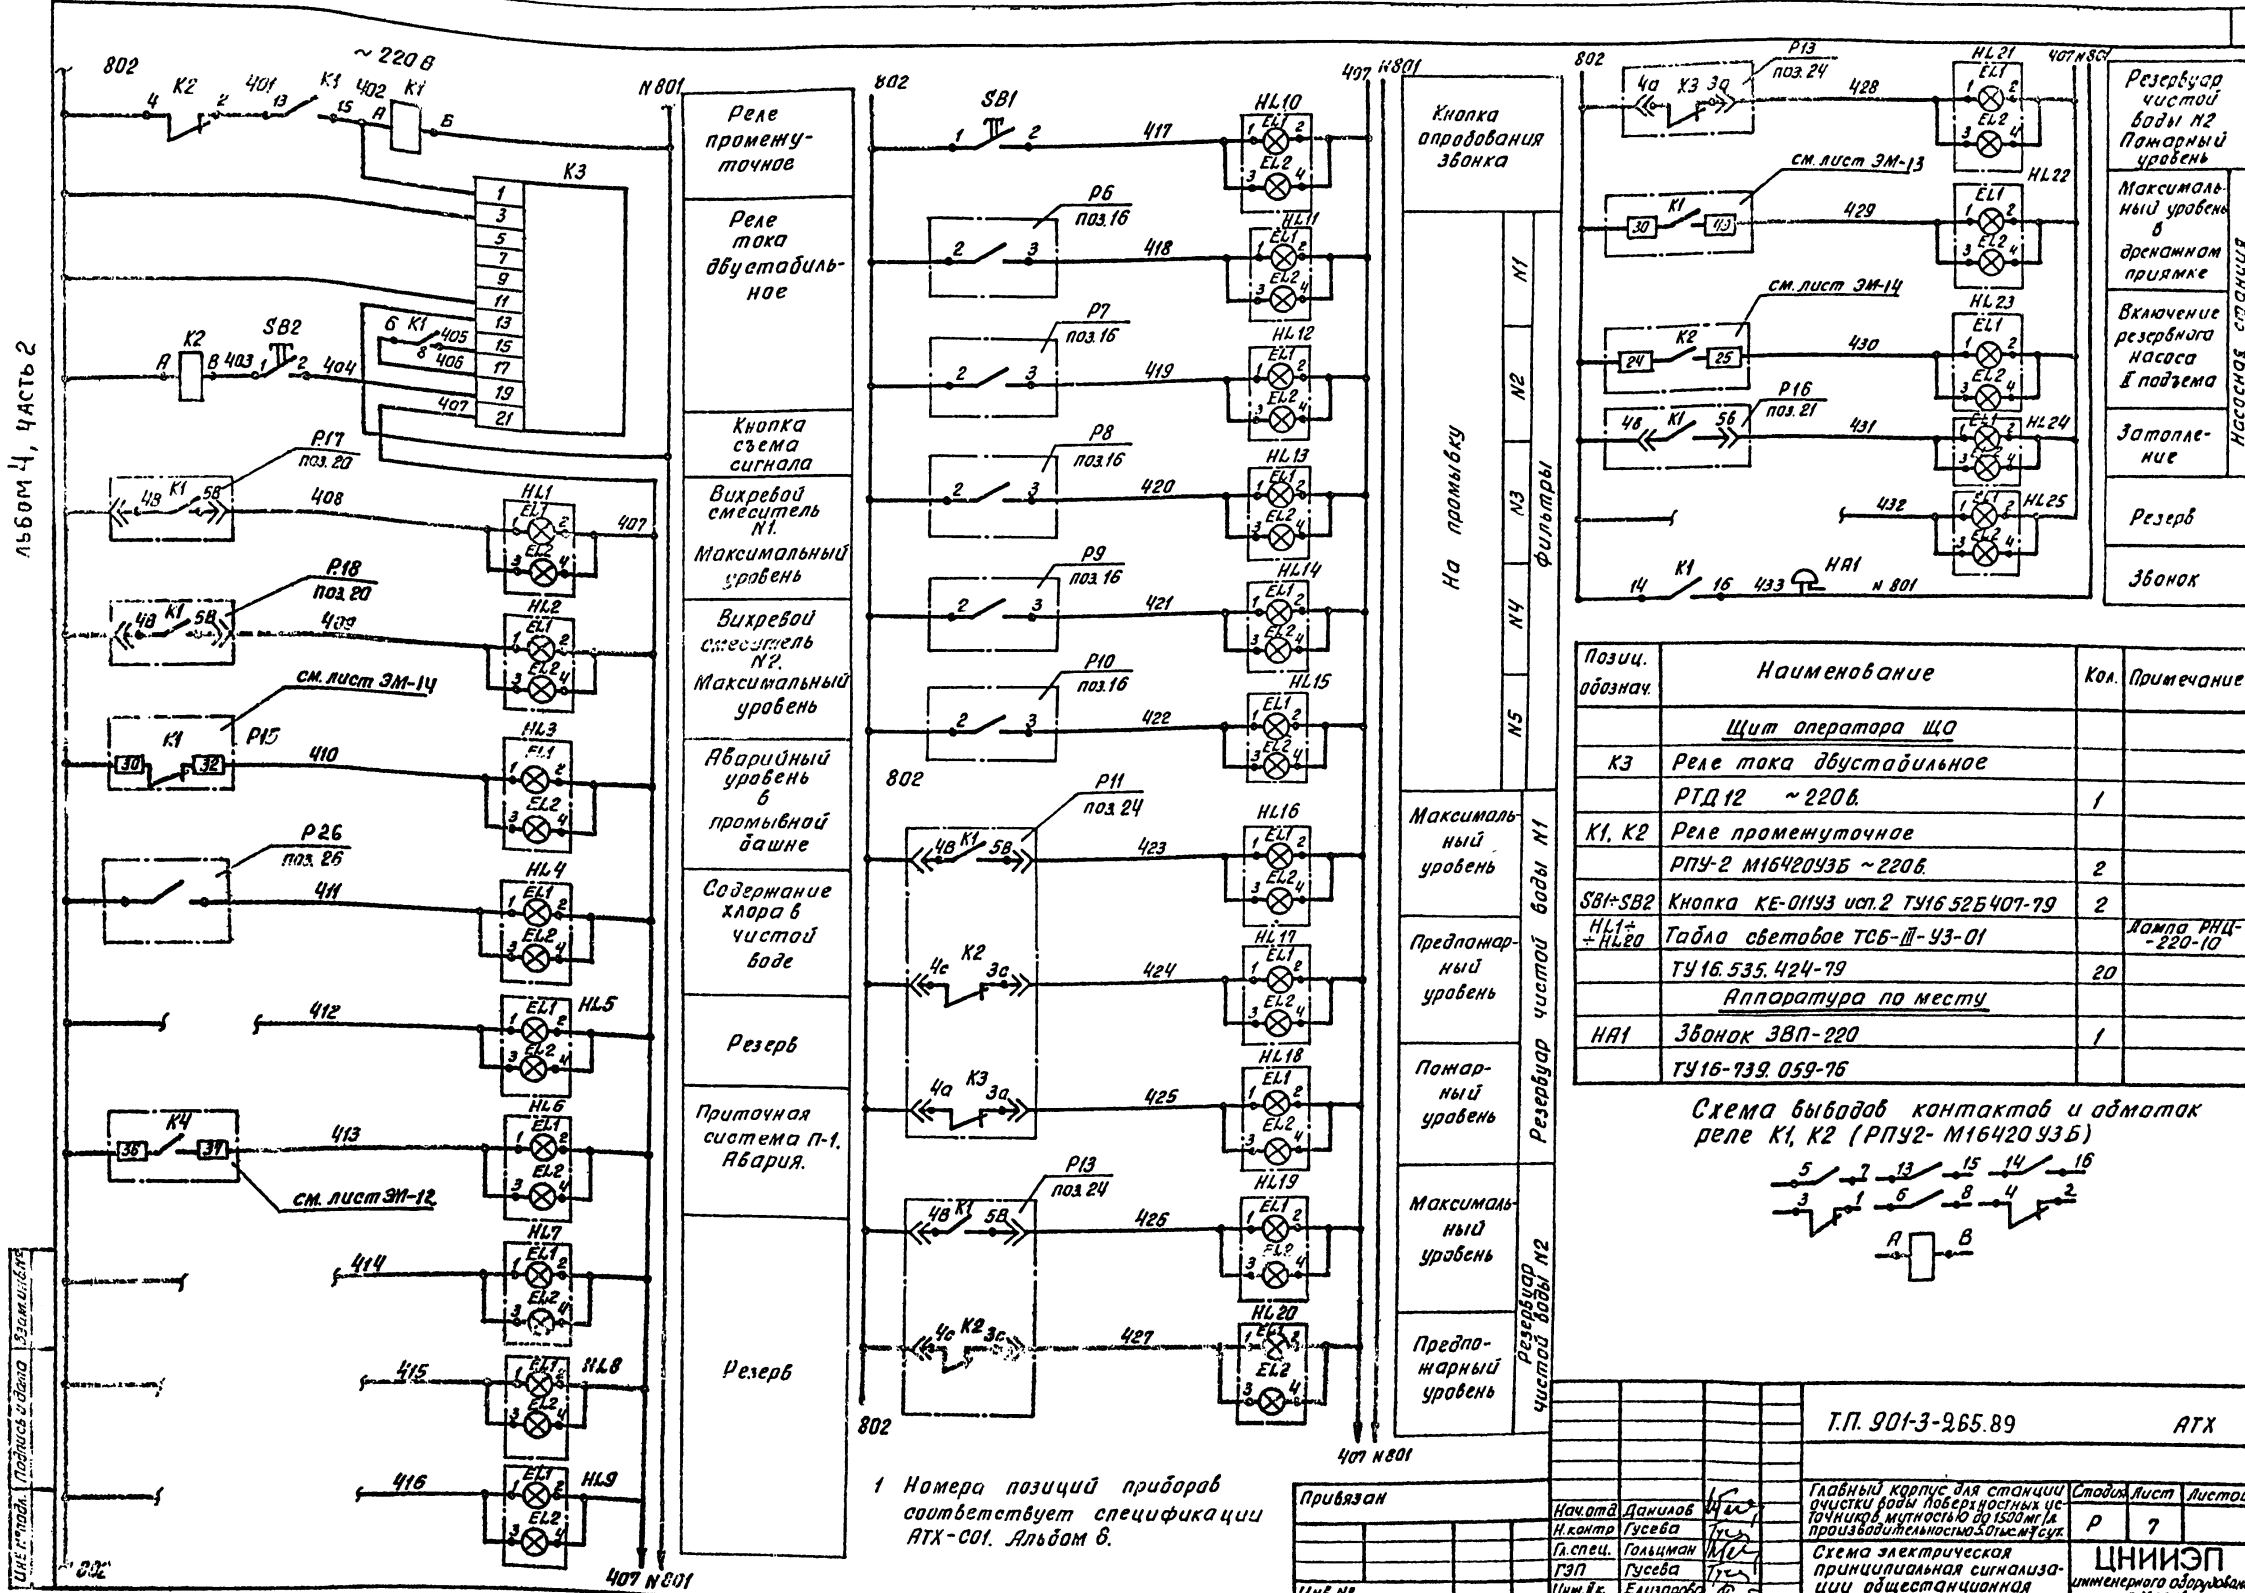 льбом 4, часть 2
802
~ 220 В
N 801
4 К2 2 401 13 К1 15 402 А К1 Б
К3
1
3
5
7
9
11
13
15
17
19
21
6 К1 8 405
406
407
А К2 В 403 1 SB2 2 404
Р17
поз. 20
4В К1 5В 408
HL1
EL1
1 2
EL2
3 4
407
Р18
поз. 20
4В К1 5В 409
HL2
EL1
1 2
EL2
3 4
см. лист ЭМ-14
30 К1 32 Р15 410
HL3
EL1
1 2
EL2
3 4
Р26
поз. 26
411
HL4
EL1
1 2
EL2
3 4
412
HL5
EL1
1 2
EL2
3 4
36 К4 37 413
см. лист ЭМ-12
HL6
EL1
1 2
EL2
3 4
414
HL7
EL1
1 2
EL2
3 4
415
HL8
EL1
1 2
EL2
3 4
416
HL9
EL1
1 2
EL2
3 4
802
407 N 801
Реле
промежу-
точное
Реле
тока
двустабиль-
ное
Кнопка
съема
сигнала
Вихревой
смеситель
N1.
Максимальный
уровень
Вихревой
смеситель
N2.
Максимальный
уровень
Аварийный
уровень
в
промывной
башне
Содержание
хлора в
чистой
воде
Резерв
Приточная
система П-1.
Авария.
Резерв
802
407 N801
SB1
1 2 417
HL10
EL1
1 2
EL2
3 4
Р6
поз.16
2 3 418
HL11
EL1
1 2
EL2
3 4
Р7
поз.16
2 3 419
HL12
EL1
1 2
EL2
3 4
Р8
поз.16
2 3 420
HL13
EL1
1 2
EL2
3 4
Р9
поз.16
2 3 421
HL14
EL1
1 2
EL2
3 4
Р10
поз.16
2 3 422
HL15
EL1
1 2
EL2
3 4
802
Р11
поз.24
4В К1 5В 423
HL16
EL1
1 2
EL2
3 4
4с К2 3с 424
HL17
EL1
1 2
EL2
3 4
4а К3 3а 425
HL18
EL1
1 2
EL2
3 4
Р13
поз.24
4В К1 5В 426
HL19
EL1
1 2
EL2
3 4
4с К2 3с 427
HL20
EL1
1 2
EL2
3 4
802
407 N801
Кнопка
опробования
звонка
На промывку
N1
N2
N3
N4
N5
фильтры
Максималь-
ный
уровень
Предпожар-
ный
уровень
Пожар-
ный
уровень
Резервуар чистой воды N1
Максималь-
ный
уровень
Предпо-
жарный
уровень
Резервуар
чистой воды N2
1 Номера позиций приборов
соответствует спецификации
АТХ-С01. Альбом 6.
802
407 N801
Р13
поз.24
4а К3 3а 428
HL21
EL1
1 2
EL2
3 4
см. лист ЭМ-13
30 К1 43 429
HL22
EL1
1 2
EL2
3 4
см. лист ЭМ-14
24 К2 25 430
HL23
EL1
1 2
EL2
3 4
Р16
поз.21
4В К1 5В 431
HL24
EL1
1 2
EL2
3 4
432
HL25
EL1
1 2
EL2
3 4
14 К1 16 433 НА1 N 801
Резервуар
чистой
воды N2
Пожарный
уровень
Максималь-
ный уровень
в
дренажном
приямке
Включение
резервного
насоса
II подъема
Затопле-
ние
Насосная станция
Резерв
Звонок
Позиц. обознач. Наименование Кол. Примечание
Щит оператора ЩО
К3 Реле тока двустабильное
РТД 12 ~220в. 1
К1, К2 Реле промежуточное
РПУ-2 М16420У3Б ~220в. 2
SB1÷SB2 Кнопка КЕ-011У3 исп.2 ТУ16.526407-79 2
HL1÷÷HL20 Табло световое ТСБ-III-У3-01 Лампа РНЦ--220-10
ТУ16.535.424-79 20
Аппаратура по месту
НА1 Звонок ЗВП-220 1
ТУ16-739.059-76
Схема выводов контактов и обмоток
реле К1, К2 (РПУ2-М16420У3Б)
5 7 13 15 14 16
3 1 6 8 4 2
А В
Привязан
Инв.№
Нач.отд Данилов
Н.контр Гусева
Гл.спец. Гольцман
ГЭП Гусева
Т.П. 901-3-265.89 АТХ
Главный корпус для станции
очистки воды поверхностных ис-
точников мутностью до 1500мг/л
производительностью 5.0тыс.м³/сут.
Схема электрическая
принципиальная сигнализа-
ции общестанционная
Стадия Лист Листов
Р 7
ЦНИИЭП
инженерного оборудован
Инв.№ подл. Подпись и дата Взам.инв.№